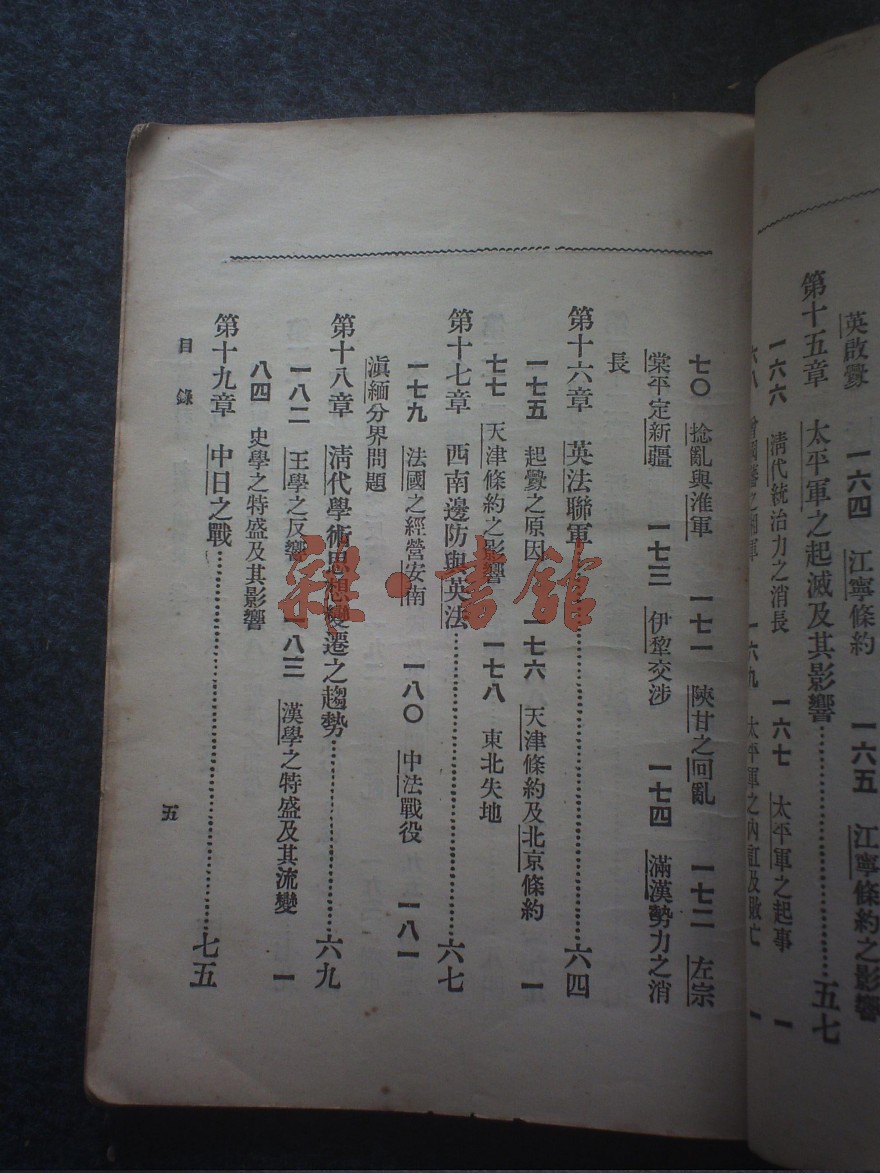 英啟釁　一六四　江寧條約　一六五　江寧條約之影響
第十五章　太平軍之起滅及其影響…………五七
一六六　清代統治力之消長　一六七　太平軍之起事　一
六八　曾國藩之湘軍　一六九　太平軍之內訌及敗亡　一
七〇　捻亂與淮軍　一七一　陝甘之回亂　一七二　左宗
棠平定新疆　一七三　伊犂交涉　一七四　滿漢勢力之消
長
第十六章　英法聯軍…………六四
一七五　起釁之原因　一七六　天津條約及北京條約　一
七七　天津條約之影響　一七八　東北失地
第十七章　西南邊防與英法…………六七
一七九　法國之經營安南　一八〇　中法戰役　一八一
滇緬分界問題
第十八章　清代學術思想變遷之趨勢…………六九
一八二　王學之反響　一八三　漢學之特盛及其流變　一
八四　史學之特盛及其影響
第十九章　中日之戰…………七五
目錄　五
雜·書館